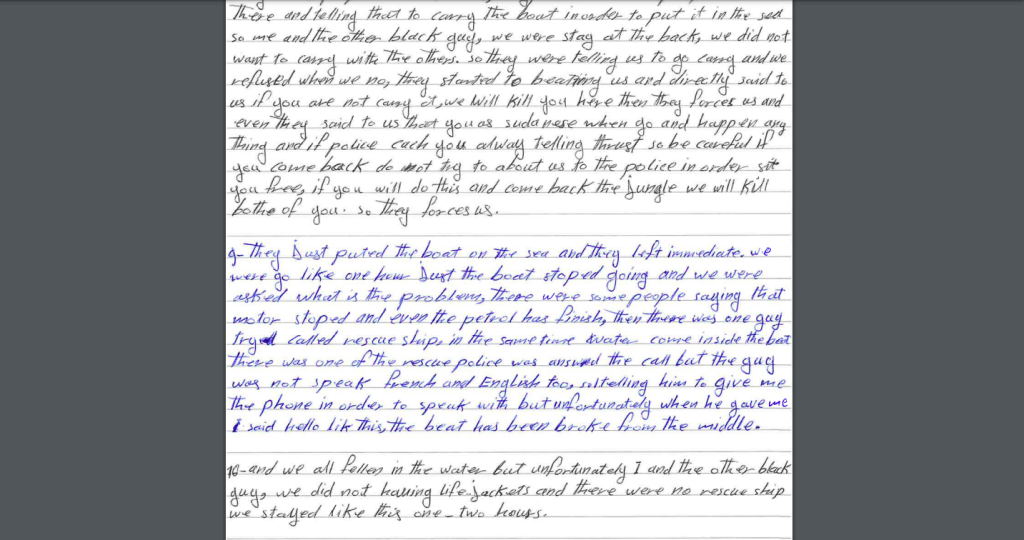 There and telling that to carry the boat inorder to put it in the sea
so me and the other black guy, we were stay at the back, we did not
want to carry with the others. so they were telling us to go carry and we
refused when we no, they started to beating us and directly said to
us if you are not carry it, we will kill you here then they forces us and
even they said to us that you as sudanese when go and happen any
thing and if police cach you alway telling thrust so be careful if
you come back do not try to about us to the police in order sit
you free, if you will do this and come back the jungle we will kill
bothe of you. so they forces us.
9- They Just puted the boat on the sea and they left immediate. we
were go like one hour Just the boat stoped going and we were
asked what is the problem, there were some people saying that
motor stoped and even the petrol has finish, then there was one guy
try called rescue ship, in the same time water come inside the boat
there was one of the rescue police was answed the call but the guy
was not speak french and English too, so I telling him to give me
the phone in order to speak with but unfortunately when he gave me
I said hello lik this, the boat has been broke from the middle.
10- and we all fellen in the water but unfortunately I and the other black
guy, we did not having life-jackets and there were no rescue ship
we stayed like this one-two hours.